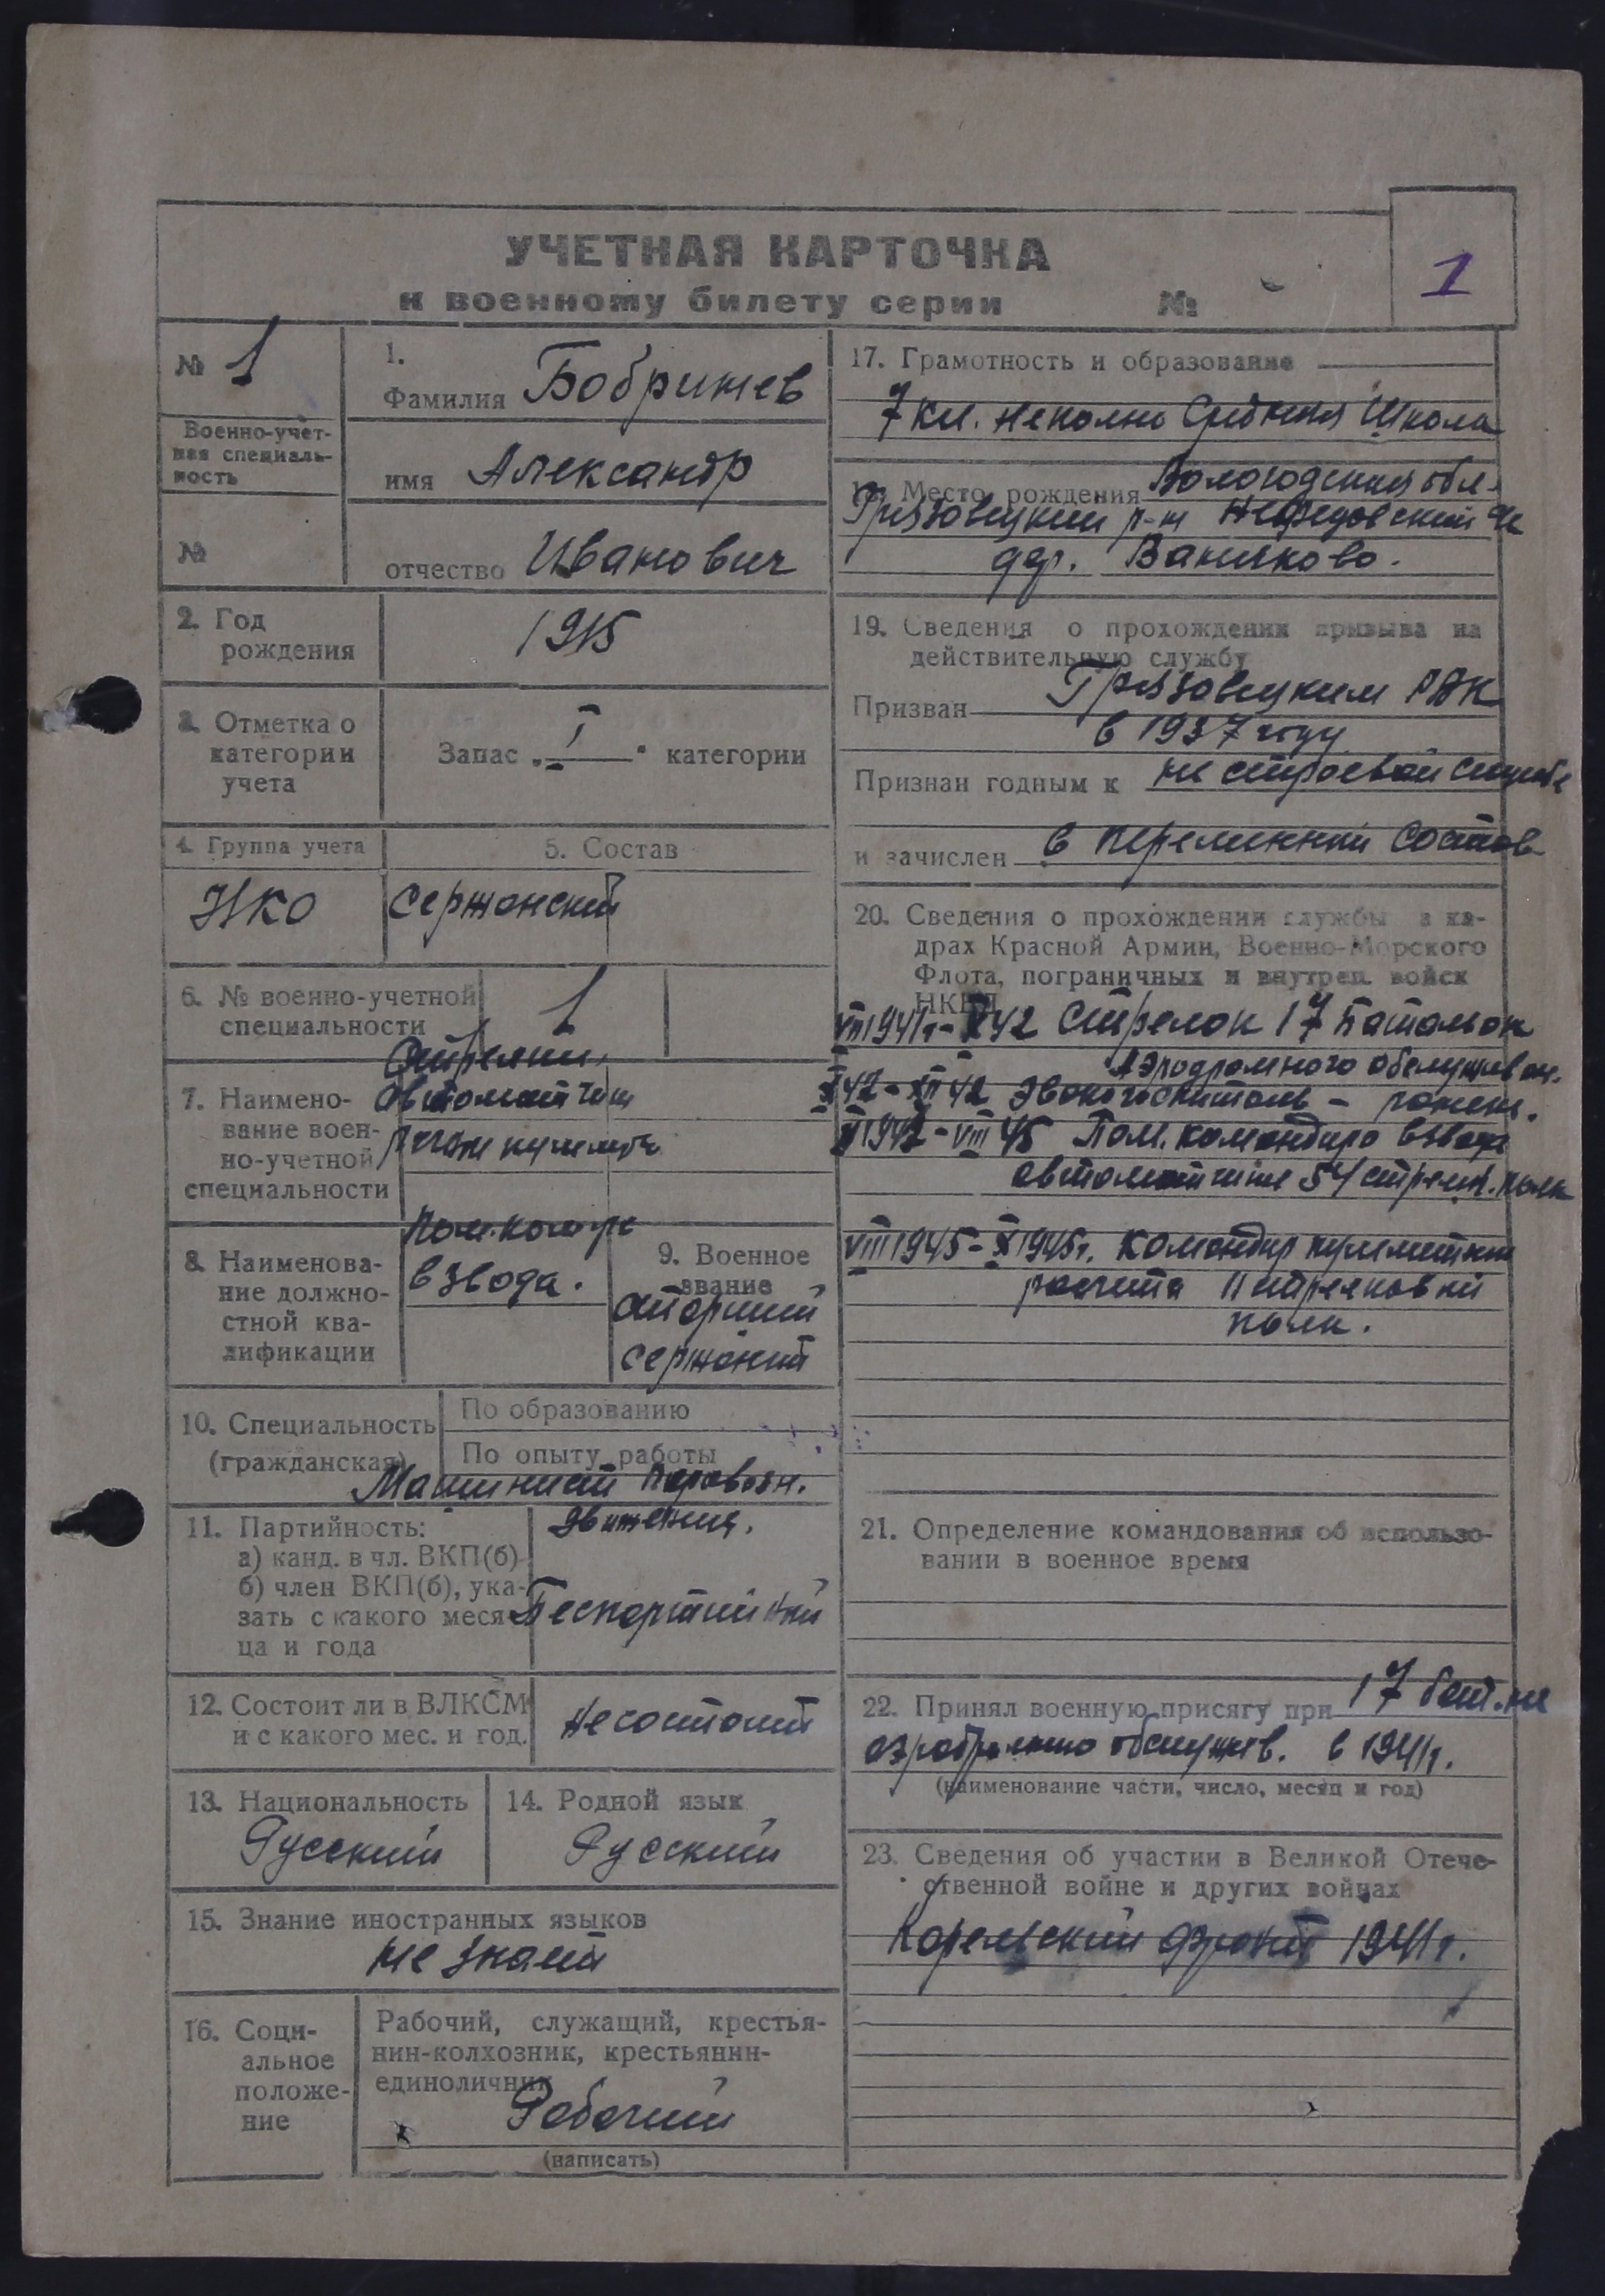 УЧЕТНАЯ КАРТОЧКА
к военному билету серии №
1
№ 1
Военно-учет-
ная специаль-
ность
№
1.
Фамилия Бобришев
имя Александр
отчество Иванович
2. Год
рождения
1915
3. Отметка о
категории
учета
Запас „I“ категории
4. Группа учета
НКО
5. Состав
Сержанский
6. № военно-учетной
специальности
1
7. Наимено-
вание воен-
но-учетной
специальности
8. Наименова-
ние должно-
стной ква-
лификации
взвода.
9. Военное
звание
старший
сержант
10. Специальность
(гражданская)
По образованию
По опыту работы
Машинист паровозн.
движения.
11. Партийность:
а) канд. в чл. ВКП(б)
б) член ВКП(б), ука-
зать с какого меся-
ца и года
Беспартийний
12. Состоит ли в ВЛКСМ
и с какого мес. и год.
не состоит
13. Национальность
Русский
14. Родной язык
Русский
15. Знание иностранных языков
не знает
16. Соци-
альное
положе-
ние
Рабочий, служащий, крестья-
нин-колхозник, крестьянин-
единоличник
Рабочий
(написать)
17. Грамотность и образование
7 кл. неполно Средния Школа
Место рождения Вологодския обл.
Грязовецкий р-н
дер. Ванчково.
19. Сведения о прохождении призыва на
действительную службу
Призван Грязовецким РВК
в 1937 году
Признан годным к не строевой службе
и зачислен в переменний состав
20. Сведения о прохождении службы в ка-
драх Красной Армии, Военно-Морского
Флота, пограничных и внутрен. войск
НКВД
VIII 1941г - X 42 Стрелок 17 Батальон
Аэродромного обслуживан.
XI 42 - XII 42 Эвакогоспиталь - ранен.
1942 - VIII 45 Пом. командира взвода
54 стрелк. полк
VIII 1945 - X 1945г. Командир
расчета
полк.
21. Определение командования об использо-
вании в военное время
22. Принял военную присягу при 17 бат.
обслужив. в 1941г.
(наименование части, число, месяц и год)
23. Сведения об участии в Великой Отече-
ственной войне и других войнах
Карельский фронт 1941г.